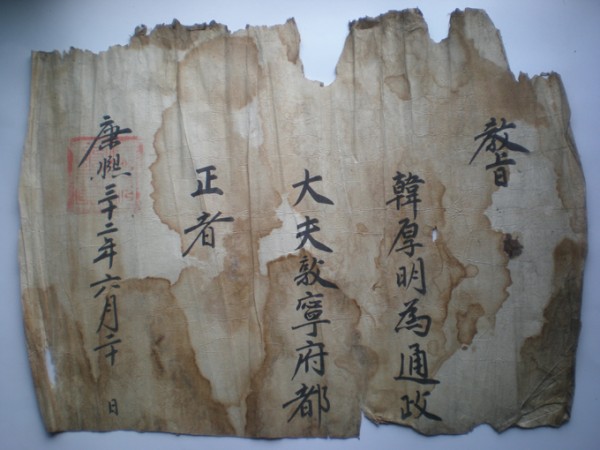 敎旨
韓厚明為通政
大夫敦寧府都
正者
康熙三十二年六月二十 日